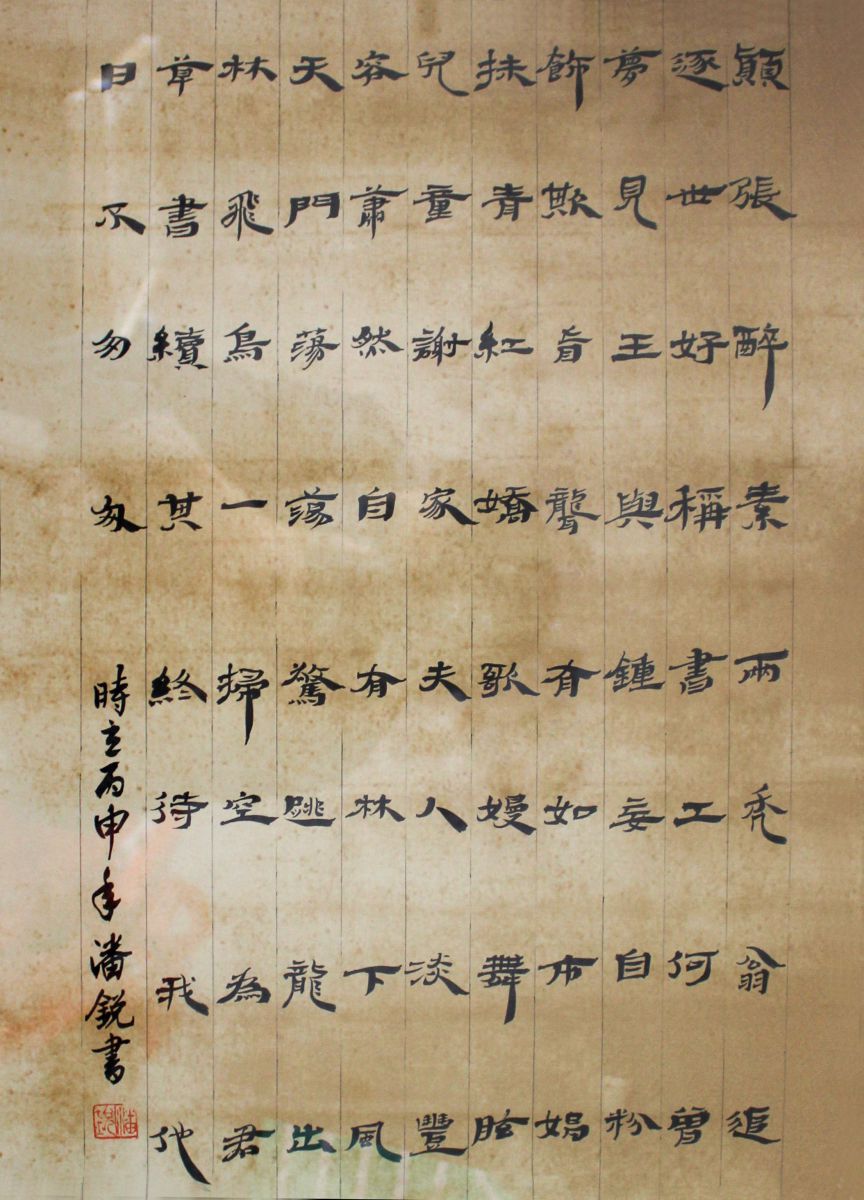 顛張醉素兩禿翁追
逐世好稱書工何曾
夢見王與鍾妄自粉
飾欺盲聾有如市娼
抹青紅嬌歌嫚舞眩
兒童謝家夫人淡豐
容蕭然自有林下風
天門蕩蕩驚跳龍出
林飛鳥一掃空為君
草書續其終待我他
日不匆匆
時丙申年潘銳書